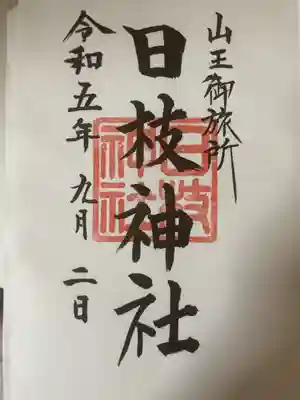 山王御旅所
日枝神社
日枝神社
令和五年 九月 二日